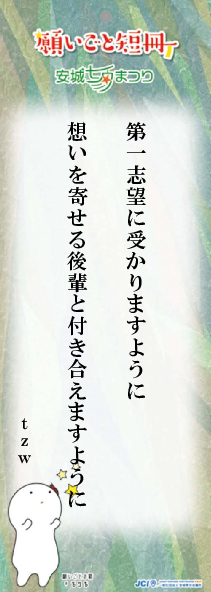 願いごと短冊
安城七夕まつり
第一志望に受かりますように
想いを寄せる後輩と付き合えますように
tzw
JCI